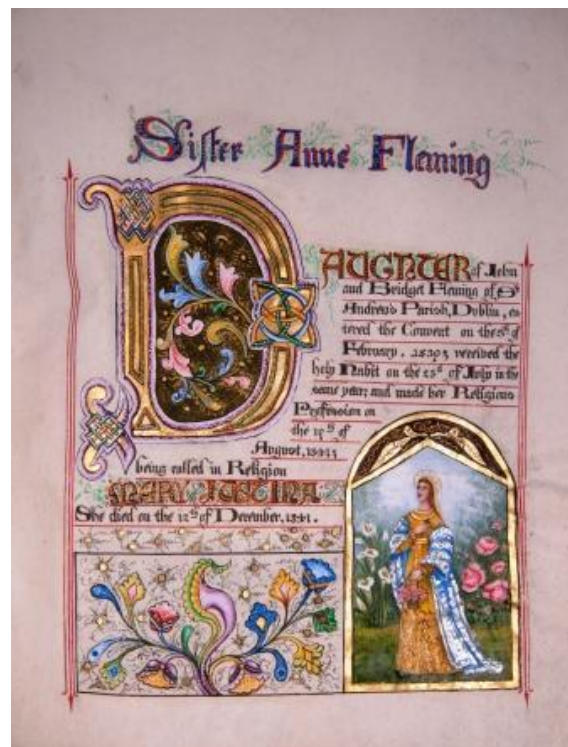 Sister Anne Fleming
DAUGHTER of John
and Bridget Fleming of St
Andrew's Parish, Dublin, en
tered the Convent on the 8th of
February, received the
holy Habit on the 23d of July in the
same year; and made her Religious
Profession on
the of
August,
being called in Religion
MARY JUSTINA
She died on the 12th of December, 1841.